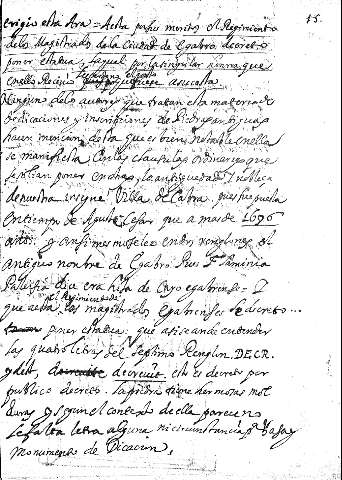 15.
erigio esta Ara = Acta por sus meritos el Regimiento
delos Magistrados de la Ciudad de Egabro decreto
poner estatua, laqual por la singular honra que
en ello Recivio
Ninguno delos autores que tratan esta materia de
Dedicaciones y inscripciones de Piedras antiguas
hacen mencion desta que es bien notable en ella
se manifiesta con las clausulas ordinarias que
solian poner en ellas, la antiguedad y nobleza
de nuestra insigne Villa de Cabra, que fue fundada
en tiempo de Agusto Cesar que a mas de 1696
años. y confirmase el en dos renglones el
Antiguo nombre de Egabro Pues Flaminia
Paleria dice era hija de Cayo egabrense = Y
el Regimiento de
que acta los magistrados Egabrenses decreto
poner estatua que asi se ande entender
las quatro letras del septimo Renglon. DECR.
y dest, decreuit. esto es decreto por
publico decreto. La piedra tiene hermosas mol
duras y segun el contexto de ella parece no
le falta letra alguna ni circunstancia pa Basa y
Monumento de Dicacion,